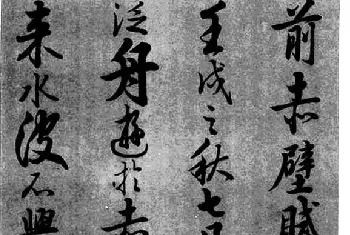 前赤壁賦
壬戌之秋七月
泛舟遊於赤
来水波不興